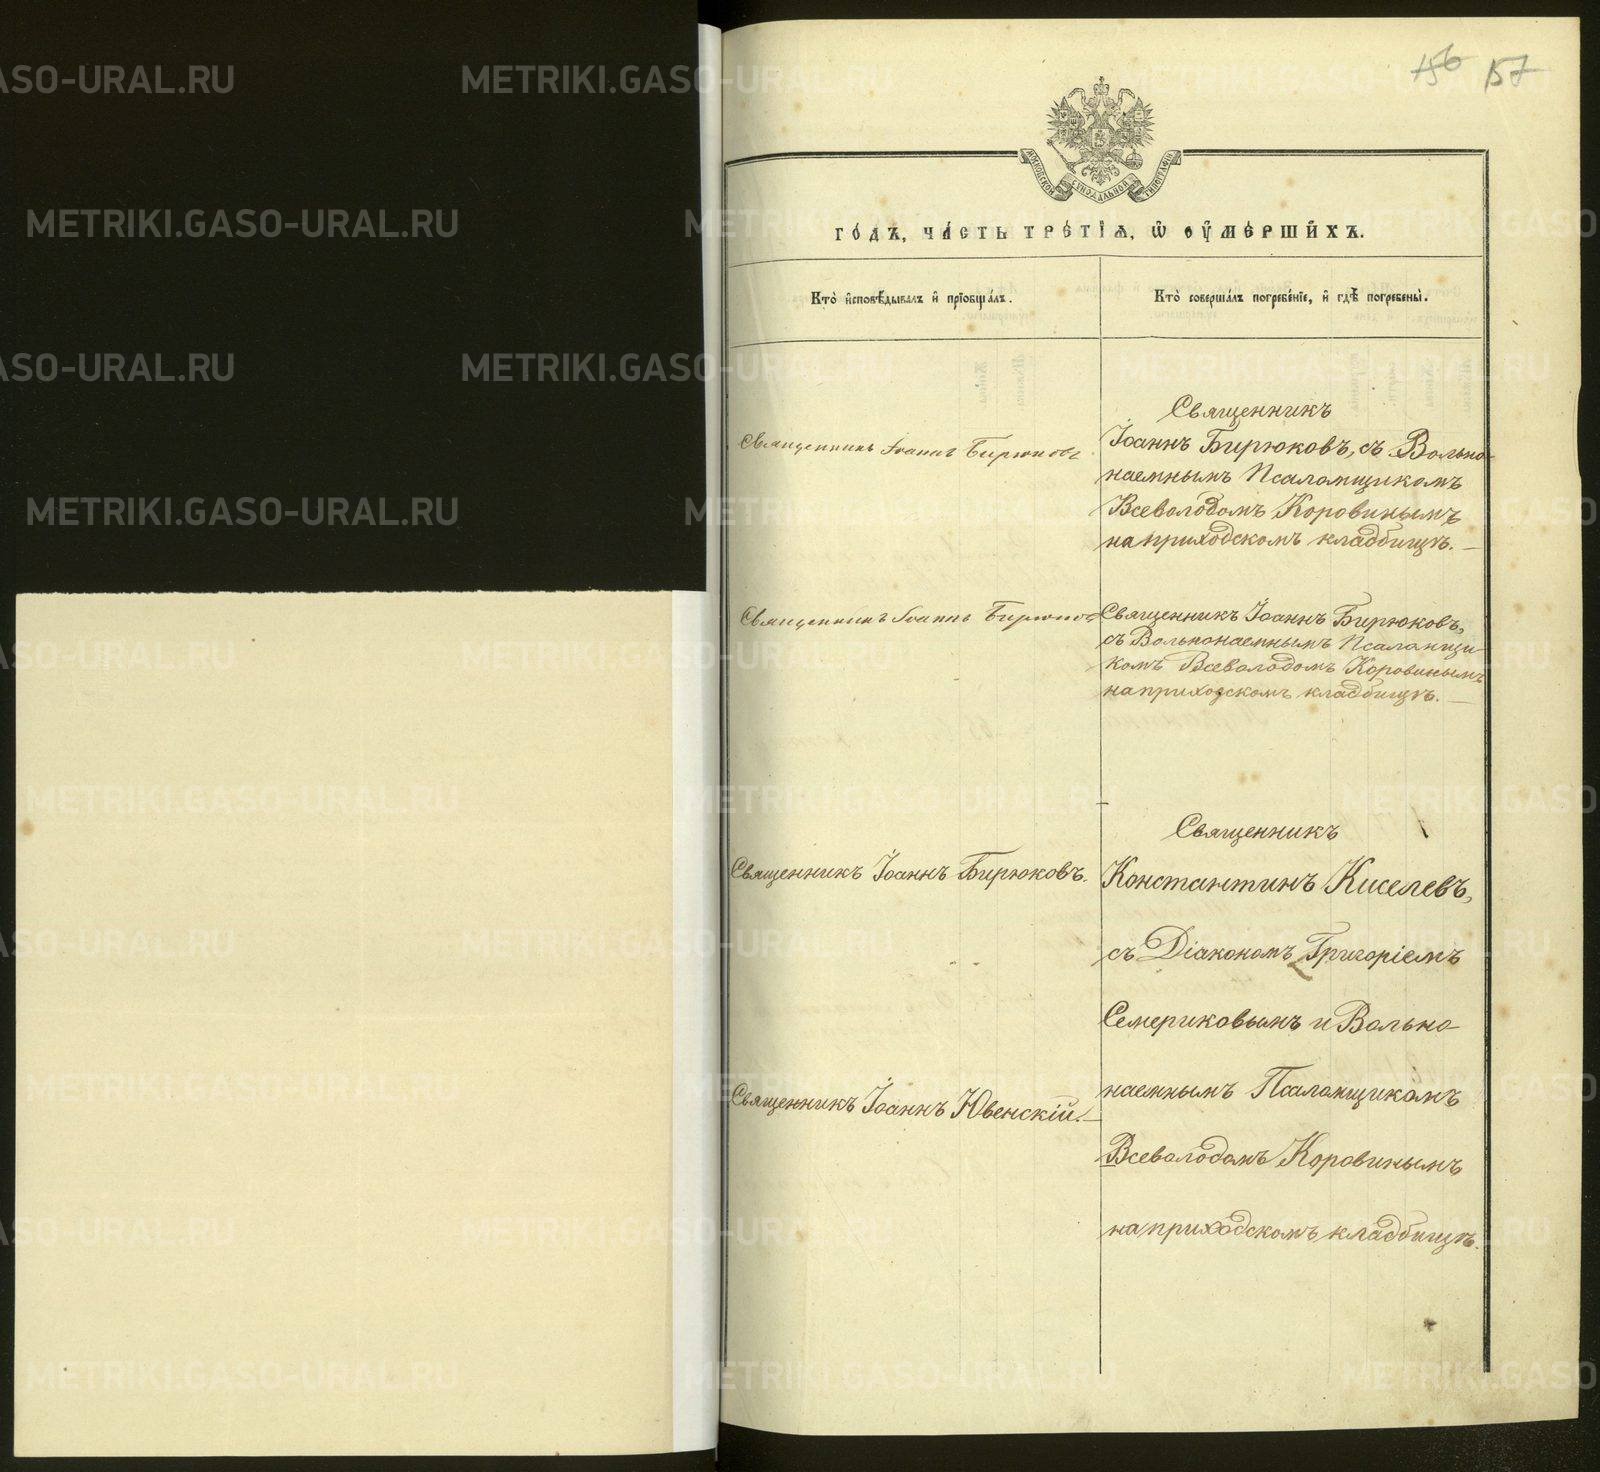 156 157
МОСКОВСКОЙ СѴНОДАЛЬНОЙ ТИПОГРАФІИ
го́дъ, ча́сть тре́тїѧ, ѡ҆ ᲂу҆ме́ршихъ.
Кто̀ и҆сповѣ́дывалъ и҆ прїобща́лъ.
Кто̀ соверша́лъ погребе́нїе, и҆ гдѣ̀ погребены̀.
Священникъ Іоаннъ Бирюковъ
Священникъ
Іоаннъ Бирюковъ, съ Вольно-
наемнымъ Псаломщикомъ
Всеволодомъ Коровинымъ
на приходскомъ кладбищѣ.
Священникъ Іоаннъ Бирюковъ
Священникъ Іоаннъ Бирюковъ,
съ Вольнонаемнымъ Псаломщи-
комъ Всеволодомъ Коровинымъ
на приходскомъ кладбищѣ.
Священникъ Іоаннъ Бирюковъ.
Священникъ Іоаннъ Ювенскій.
Священникъ
Константинъ Киселевъ,
съ Діакономъ Григоріемъ
Семериковымъ и Вольно
наемнымъ Псаломщикомъ
Всеволодомъ Коровинымъ
на приходскомъ кладбищѣ.
METRIKI.GASO-URAL.RU